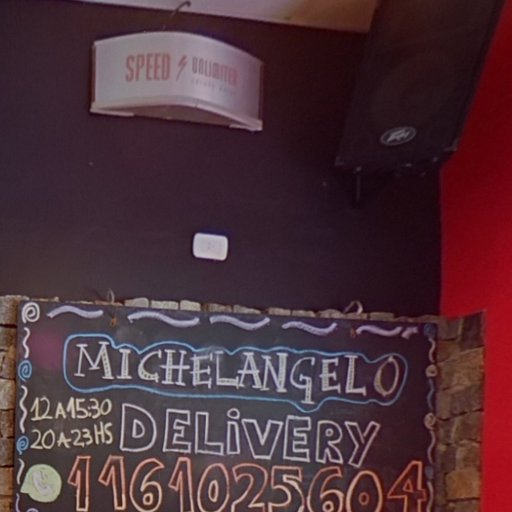 SPEED UNLIMITED
MICHELANGELO
12 A 15:30
20 A 23HS
DELiVERY
1161025604